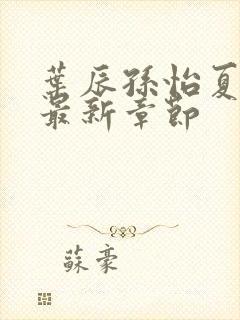 葉辰孫怡夏
最新章節
蘇豪